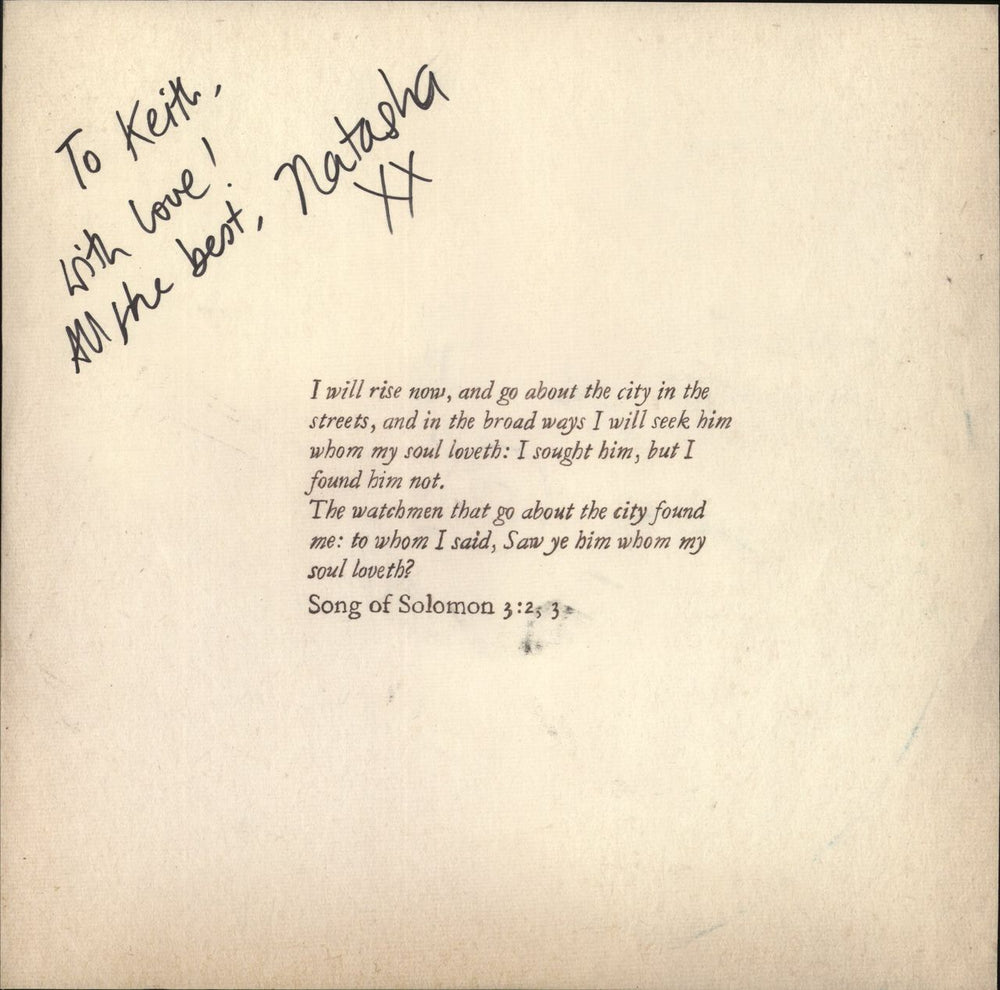 To Keith,
with love!
All the best, Natasha
XX
I will rise now, and go about the city in the
streets, and in the broad ways I will seek him
whom my soul loveth: I sought him, but I
found him not.
The watchmen that go about the city found
me: to whom I said, Saw ye him whom my
soul loveth?
Song of Solomon 3:2, 3